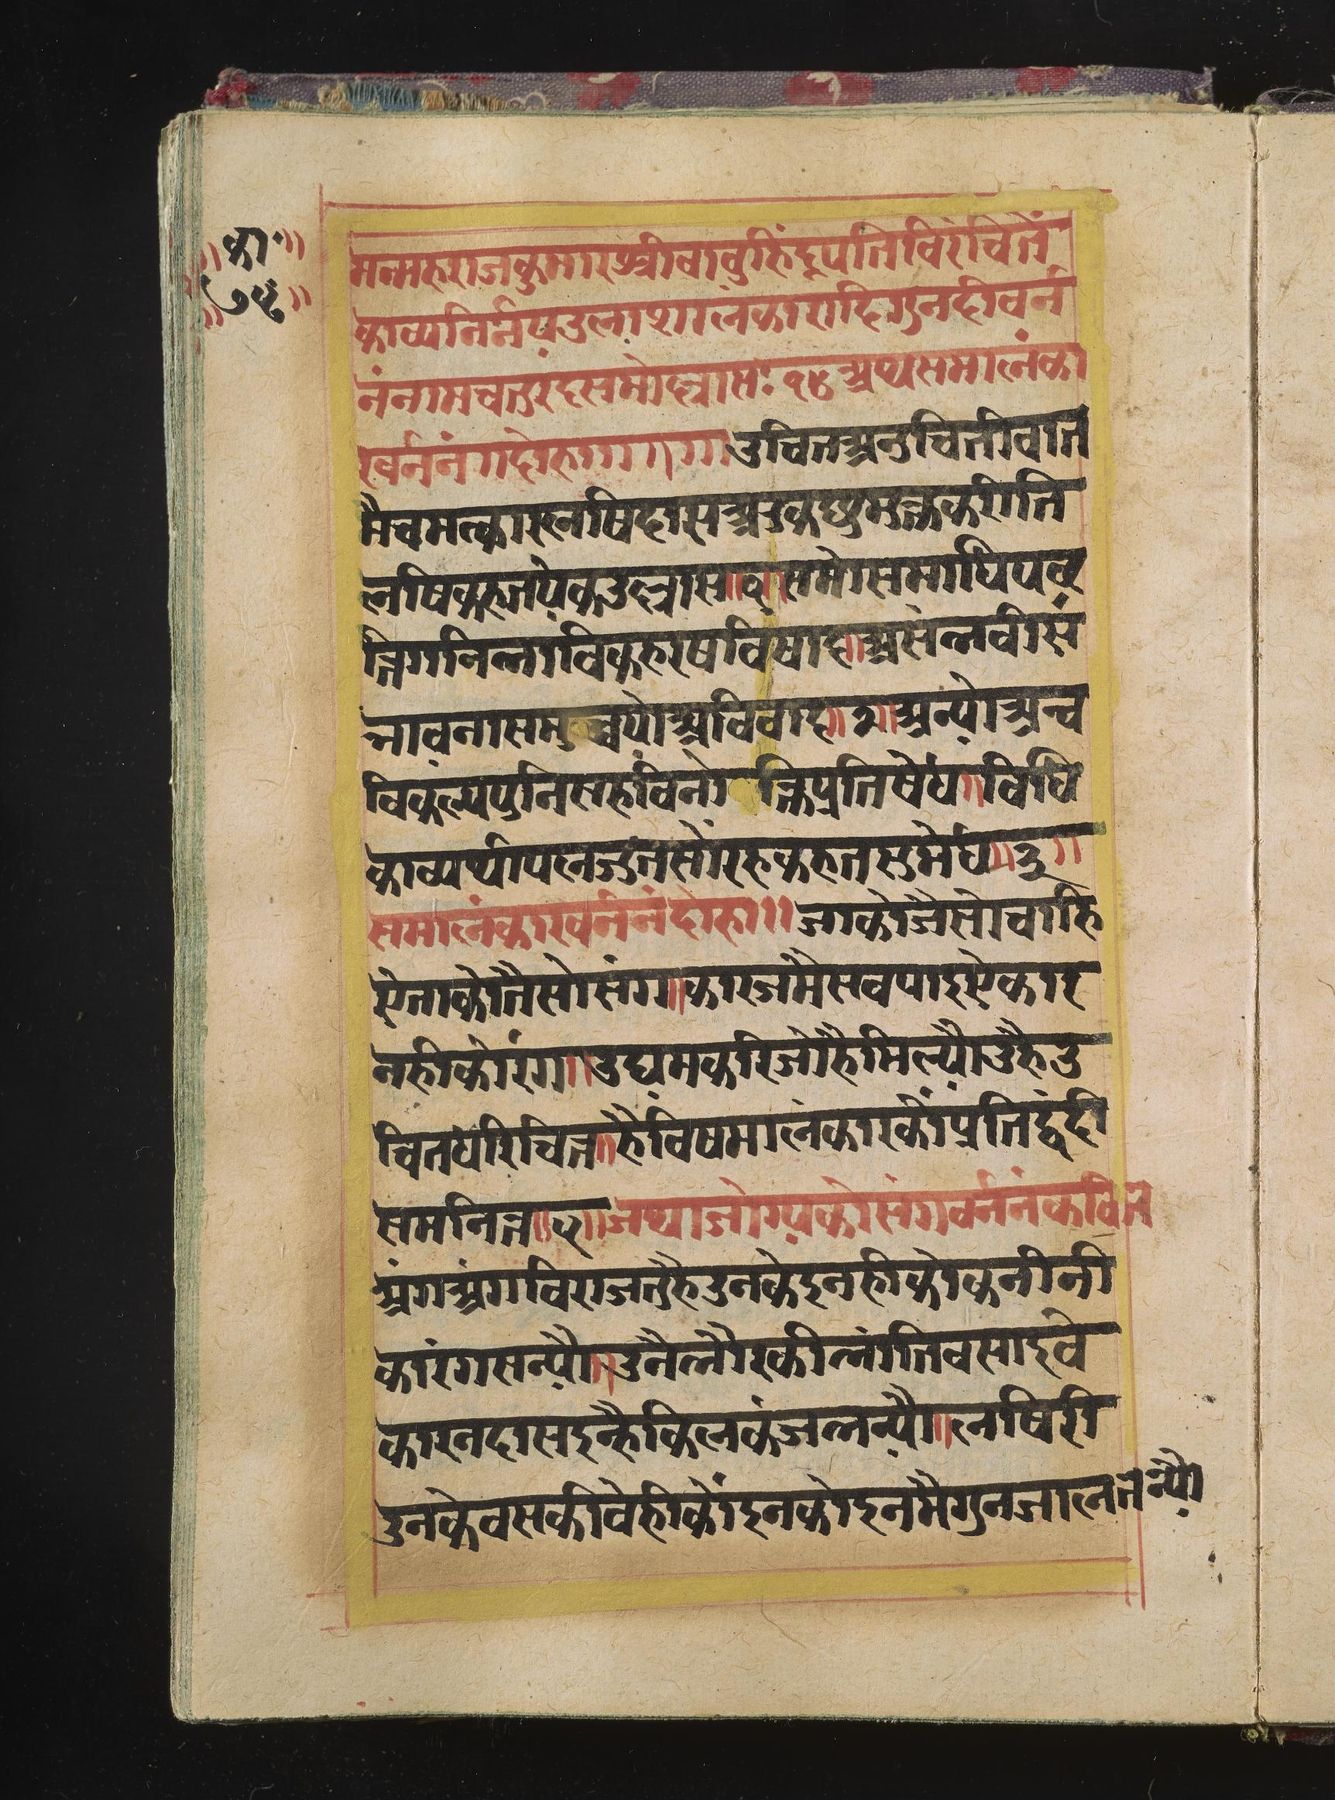 ॥का॰॥
॥७५॥
मन्महाराजकुमारश्रीवावुहिंदूपतिविरंचितें
काव्यनिर्नयउलाशालंकारादिगुनदीवर्न
नंनामचतुरदसमोल्लासः१४अथसमालंका
रवर्ननंगदोहा॥॥॥उचितअनुचितीवात
मैचमत्कारलषिदासअरुकछुमुक्तकरीति
लषिकहतऐकउल्लास॥१॥समोसमाधिपर
वृत्तिगनिभाविकहरषविषाद॥असंभवीसं
भावनासमुच्चयोअविवाद॥२॥अन्योअन्य
विकल्पपुनिसहविनोक्तिप्रतिषेध॥विधि
काव्यर्थापतजुतसोरहकहतसुमेध॥३॥
समालंकारवर्ननंदोहा॥॥जाकोजैसोचाहि
ऐताकोतैसोसंग॥कारजमैसवपाइऐकार
नहीकोरंग॥उद्यमकरिजोहैमिल्यौउहैउ
चितधरिचित्त॥हैविषमालंकारकोंप्रतिद्वंदी
समनित्त॥५॥जथाजोग्यकोसंगवर्ननंकवित्त
अंगअंगविराजतुहैउनकेइनहीकोकनीनी
कारंगसन्यौ॥उनैभौरकीभांतिवसाइवे
कारनदासइन्हैकिलकंजभन्यौ॥लषिरी
उनकेवसकीवेहीकोंइनकोइनमैगुनजालतन्यौ